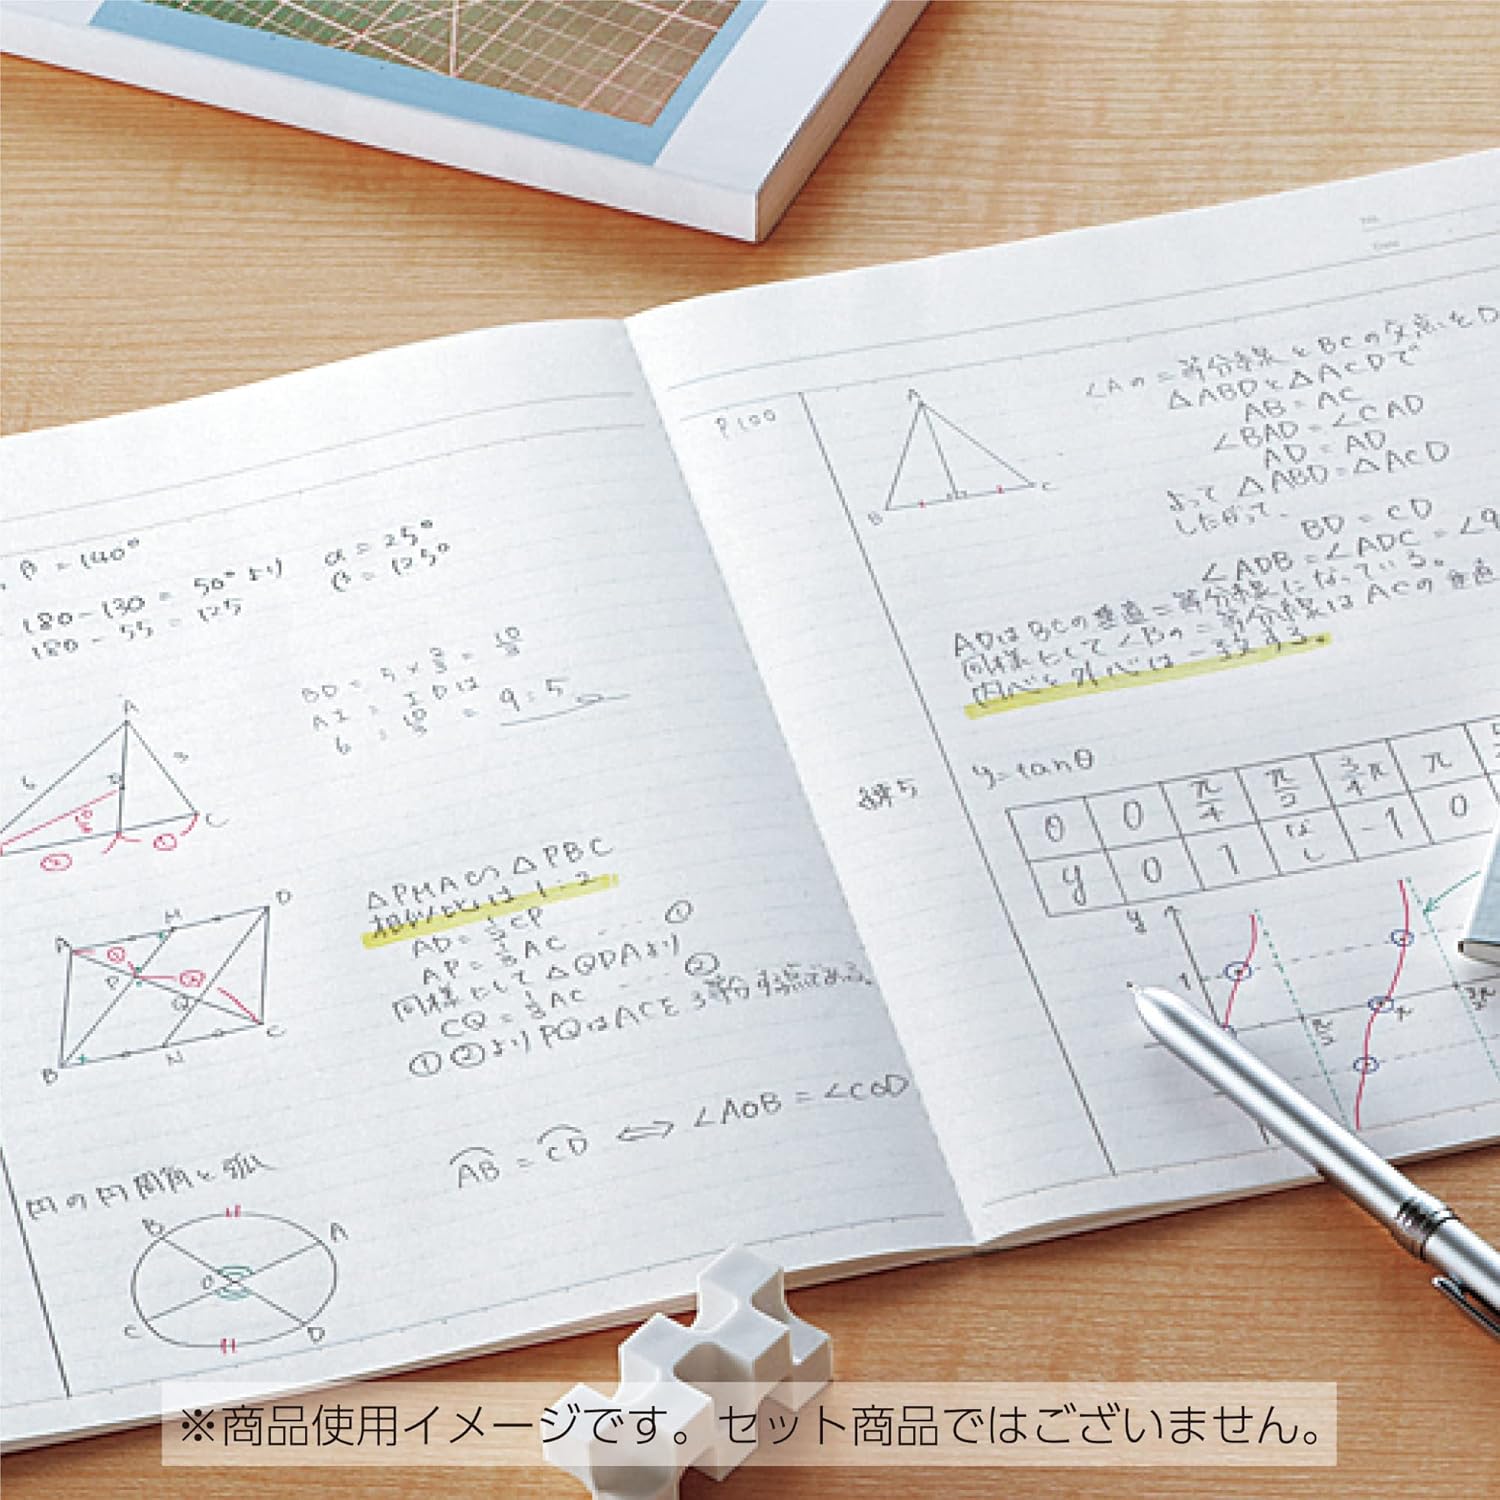 β = 140°
180 - 130 = 50° より
180 - 55 = 125
α = 25°
β = 125°
BD = 5 × 2/3 = 10/3
AI : IDは
6 : 10/3 = 9:5
A
6
3
C
②
①
△PMA∽△PBC
相似比は 1:2
AD = 1/2 CP
AP = 1/3 AC ... ①
同様にして △QDAより
CQ = 1/3 AC ... ②
①②より PQはACを3等分する点である。
A
M
D
P
Q
B
N
C
円の円周角と弧
⌒AB = ⌒CD ⇔ ∠AOB = ∠COD
B
A
O
C
D
No.
Date
P100
A
B
C
∠Aの二等分線とBCの交点をD
△ABDと△ACDで
AB = AC
∠BAD = ∠CAD
AD = AD
よって △ABD = △ACD
したがって、
BD = CD
∠ADB = ∠ADC = ∠9
ADはBCの垂直二等分線になっている。
同様にして∠Bの二等分線はACの垂直
内心と外心は一致する。
y = tanθ
θ 0 π/4 π/2 3/4π π
y 0 1 なし -1 0
y
1
π/2
π
3/2π
※商品使用イメージです。セット商品ではございません。